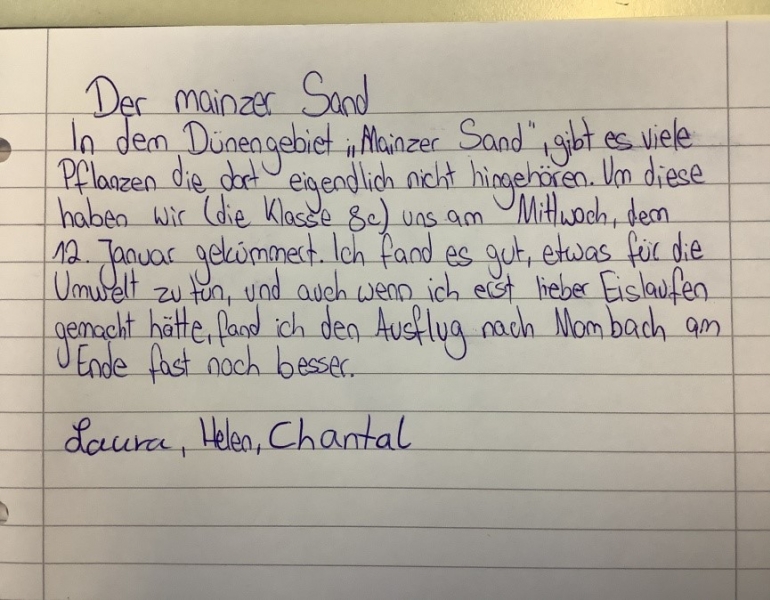 Der mainzer Sand
In dem Dünengebiet „Mainzer Sand", gibt es viele
Pflanzen die dort eigendlich nicht hingehören. Um diese
haben wir (die Klasse 8c) uns am Mittwoch, dem
12. Januar gekümmert. Ich fand es gut, etwas für die
Umwelt zu tun, und auch wenn ich erst lieber Eislaufen
gemacht hätte, fand ich den Ausflug nach Mombach am
Ende fast noch besser.
Laura, Helen, Chantal